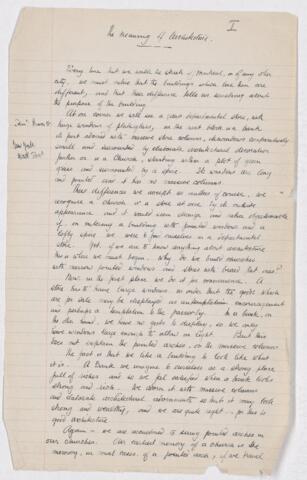 I
The meaning of Architecture.
Every time that we walk the streets of Montreal, or of any other
city, we must notice that the buildings which line them are
different, and that their difference tells us something about
the purpose of the building.
At one corner we will see a great departmental store, with
large windows of plate glass, on the next there is a bank
its front adorned with massive stone columns, windows comparatively
small and surrounded by elaborate architectural decoration
further on is a Church, standing within a plot of green
grass and surrounded by a fence. Its windows are long
and pointed and it has no massive columns.
These differences we accept as matters of course, we
recognise a church or a store at once by its outside
appearance and it would seem strange and rather objectionable
if, on entering a building with pointed windows and a
lofty spire we were to find ourselves in a departmental
store. Yet, if we are to know anything about architecture
this is where we must begin. Why do we build churches
with narrow pointed windows and stores with broad flat ones?
Well in the first place, we do it for convenience. A
store has to have large windows in order that the goods which
are for sale may be displayed as contemplation, encouragement
and perhaps a temptation to the passerby. In a bank, on
the other hand, we have no goods to display, so we only
have windows large enough to allow in light. But this
does not explain the pointed arches, or the massive columns
The fact is that we like a building to look like what
it is. A bank, we imagine to ourselves as a strong place
full of riches and so we feel satisfied when a bank looks
strong and rich. We adorn it with massive columns
and elaborate architectural adornments so that it may look
strong and wealthy, and we are quite right - for this is
good architecture.
Again - we are accustomed to seeing pointed arches in
our churches. Our earliest memory of a church is the
memory, in most cases, of a pointed arch, if we travel